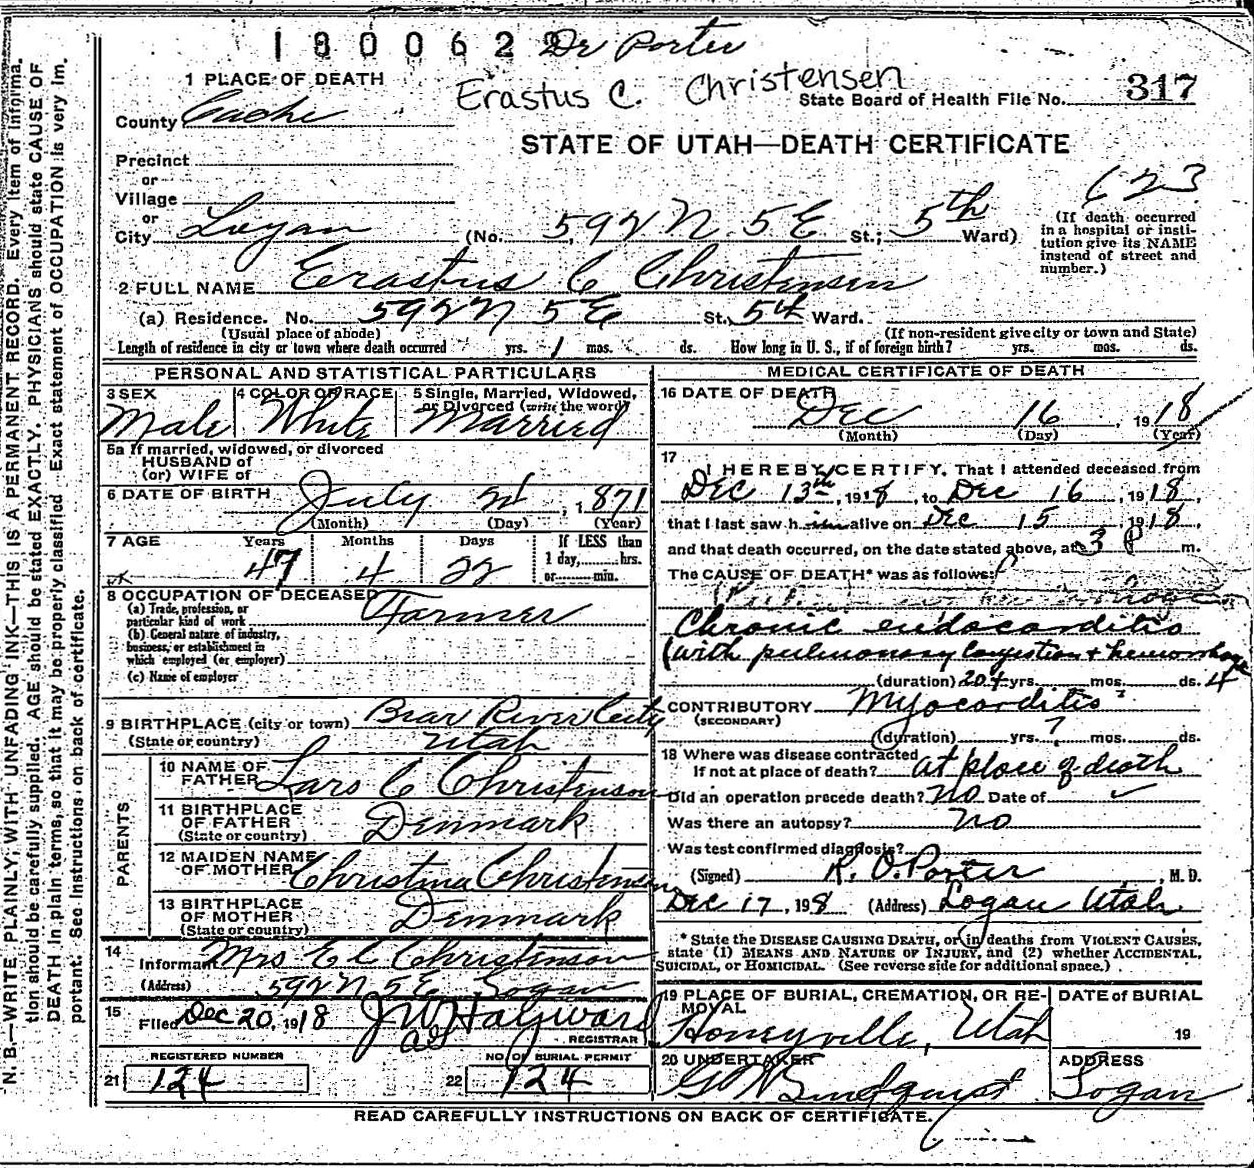 1800622 Dr Porter
1 PLACE OF DEATH
Erastus C. Christensen
State Board of Health File No. 317
County Cache
STATE OF UTAH—DEATH CERTIFICATE
Precinct
or
Village
623
or
City Logan (No. 592 N. 5 E St.; 5th Ward)
(If death occurred in a hospital or insti-
tution give its NAME instead of street and number.)
2 FULL NAME Erastus C Christensen
(a) Residence. No. 592 N 5 E St. 5th Ward.
(Usual place of abode) (If non-resident give city or town and State)
Length of residence in city or town where death occurred yrs. 1 mos. ds. How long in U. S., if of foreign birth? yrs. mos. ds.
PERSONAL AND STATISTICAL PARTICULARS
3 SEX 4 COLOR OF RACE 5 Single, Married, Widowed, or Divorced (write the word)
Male White Married
5a If married, widowed, or divorced
HUSBAND of
(or) WIFE of
6 DATE OF BIRTH July , 1871
(Month) (Day) (Year)
7 AGE Years Months Days If LESS than
1 day, hrs.
or min.
47 4 22
8 OCCUPATION OF DECEASED
(a) Trade, profession, or
particular kind of work Farmer
(b) General nature of industry,
business, or establishment in
which employed (or employer)
(c) Name of employer
9 BIRTHPLACE (city or town) Bear River City
(State or country) Utah
PARENTS
10 NAME OF
FATHER Lars C Christenson
11 BIRTHPLACE
OF FATHER Denmark
(State or country)
12 MAIDEN NAME
OF MOTHER Christina Christensen
13 BIRTHPLACE
OF MOTHER Denmark
(State or country)
14
Informant Mrs E C Christenson
(Address) 592 N 5 E Logan
15
Filed Dec 20, 1918 J W Hayward
REGISTRAR
REGISTERED NUMBER NO. OF BURIAL PERMIT
21 124 22 124
MEDICAL CERTIFICATE OF DEATH
16 DATE OF DEATH
Dec 16, 1918
(Month) (Day) (Year)
17
I HEREBY CERTIFY, That I attended deceased from
Dec 13th, 1918, to Dec 16, 1918,
that I last saw him alive on Dec 15 1918,
and that death occurred, on the date stated above, at 3 P m.
The CAUSE OF DEATH* was as follows:
Chronic endocarditis
(with pulmonary congestion + hemorrhage
(duration) 20+ yrs. mos. ds. 4
CONTRIBUTORY Myocarditis
(SECONDARY)
(duration) yrs. ? mos. ds.
18 Where was disease contracted
If not at place of death? at place of death
Did an operation precede death? no Date of
Was there an autopsy? no
Was test confirmed diagnosis?
(Signed) R. O. Porter, M.D.
Dec 17, 198 (Address) Logan Utah
* State the DISEASE CAUSING DEATH, or in deaths from VIOLENT CAUSES,
state (1) MEANS AND NATURE OF INJURY, and (2) whether ACCIDENTAL,
SUICIDAL, or HOMICIDAL. (See reverse side for additional space.)
19 PLACE OF BURIAL, CREMATION, OR RE-
MOVAL DATE of BURIAL
Honeyville, Utah 19
20 UNDERTAKER ADDRESS
Logan
READ CAREFULLY INSTRUCTIONS ON BACK OF CERTIFICATE.
N. B.—WRITE PLAINLY, WITH UNFADING INK—THIS IS A PERMANENT RECORD. Every item of informa-
tion should be carefully supplied. AGE should be stated EXACTLY. PHYSICIANS should state CAUSE OF
DEATH in plain terms, so that it may be properly classified. Exact statement of OCCUPATION is very im-
portant. See instructions on back of certificate.